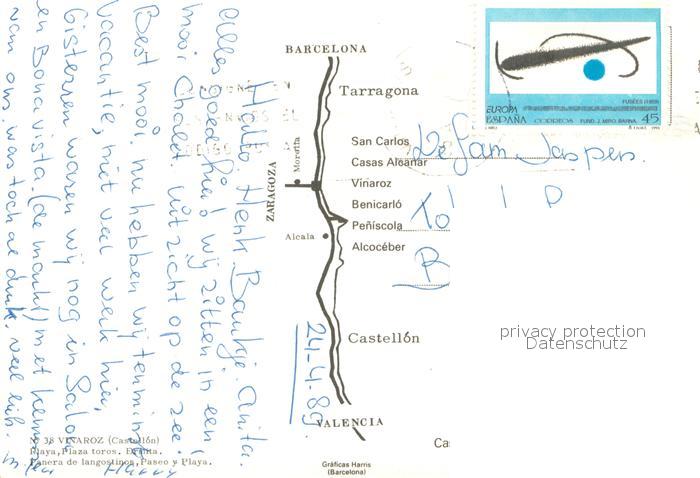 Hallo Henk. Baukje. Anita.
alles goed hier! wij zitten in een
mooi Chalet. Uitzicht op de zee!
Best mooi. nu hebben wij tenminste
vacantie, niet veel werk hier,
Gisteren waren wij nog in Salou
en Bona vista. (de markt) met
van ons. was toch al druk. veel
24-4-89.
BARCELONA
Tarragona
San Carlos
Casas Alcanar
Vinaroz
Benicarló
Peñíscola
Alcocéber
Morella
ZARAGOZA
Alcala
Castellón
VALENCIA
Nº 38 VINAROZ (Castellón)
Playa, Plaza toros. Ermita.
Panera de langostinos, Paseo y Playa.
Gráficas Harris
(Barcelona)
FUSÉES (1959)
EUROPA
ESPAÑA CORREOS FUND. J. MIRO. BARNA. 45
Fam. Jaspers.
privacy protection
Datenschutz